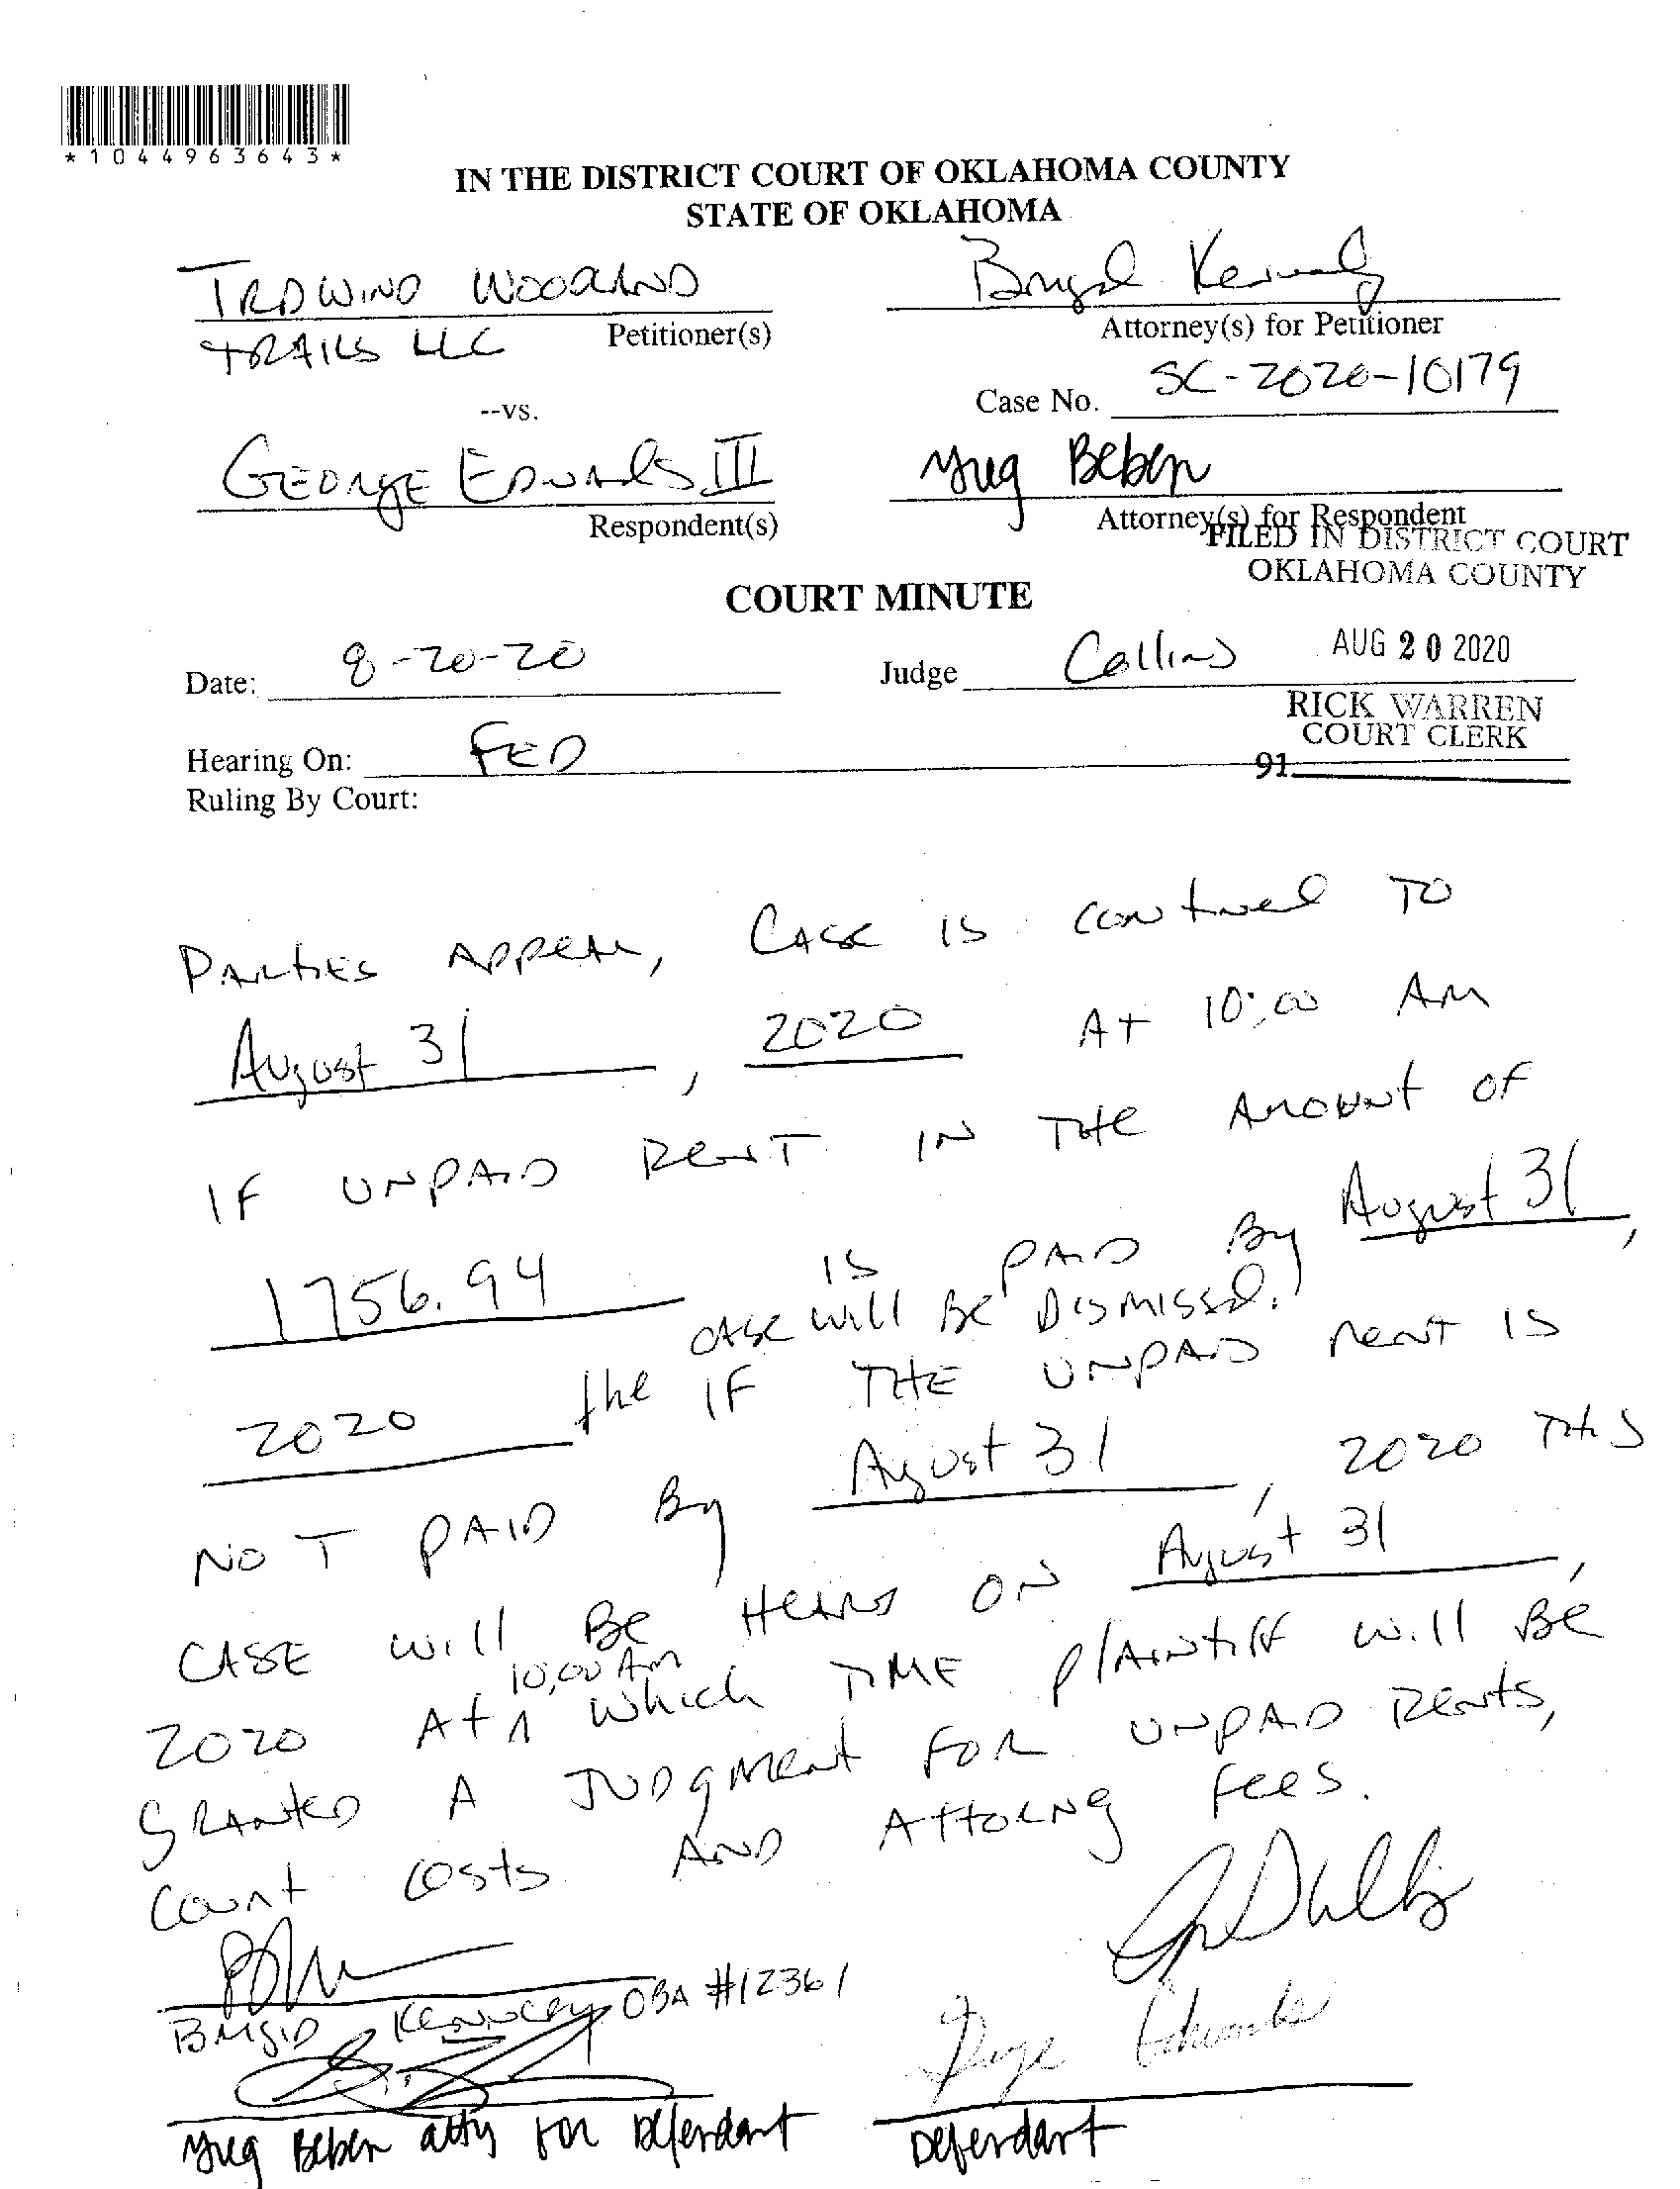 *1044963643*
IN THE DISTRICT COURT OF OKLAHOMA COUNTY
STATE OF OKLAHOMA
TRDWIND WOODLAND
TRAILS LLC
Petitioner(s)
Brigid Kennedy
Attorney(s) for Petitioner
Case No. SC-2020-10179
--vs.
GEORGE EDWARDS III
Respondent(s)
Beben
Attorney(s) for Respondent
FILED IN DISTRICT COURT
OKLAHOMA COUNTY
COURT MINUTE
AUG 20 2020
Date: 8-20-20
Judge Collins
RICK WARREN
COURT CLERK
Hearing On: FED
91
Ruling By Court:
PARTIES APPEAR, CASE IS continued TO
August 31, 2020 At 10:00 AM
IF UNPAID RENT IN THE AMOUNT OF
1756.94 IS PAID By August 31,
CASE will BE DISMISSED.
2020 the IF THE UNPAID RENT IS
NOT PAID By August 31, 2020 THIS
CASE will Be HEARD ON August 31,
10:00 Am
2020 At ^ which TIME plaintiff will Be
GRANTED A JUDGMENT FOR UNPAID RENTS,
Court costs AND Attorney fees.
BRIGID KENNEDY OBA #12361
George Edwards
Beben atty for Defendant
Defendant